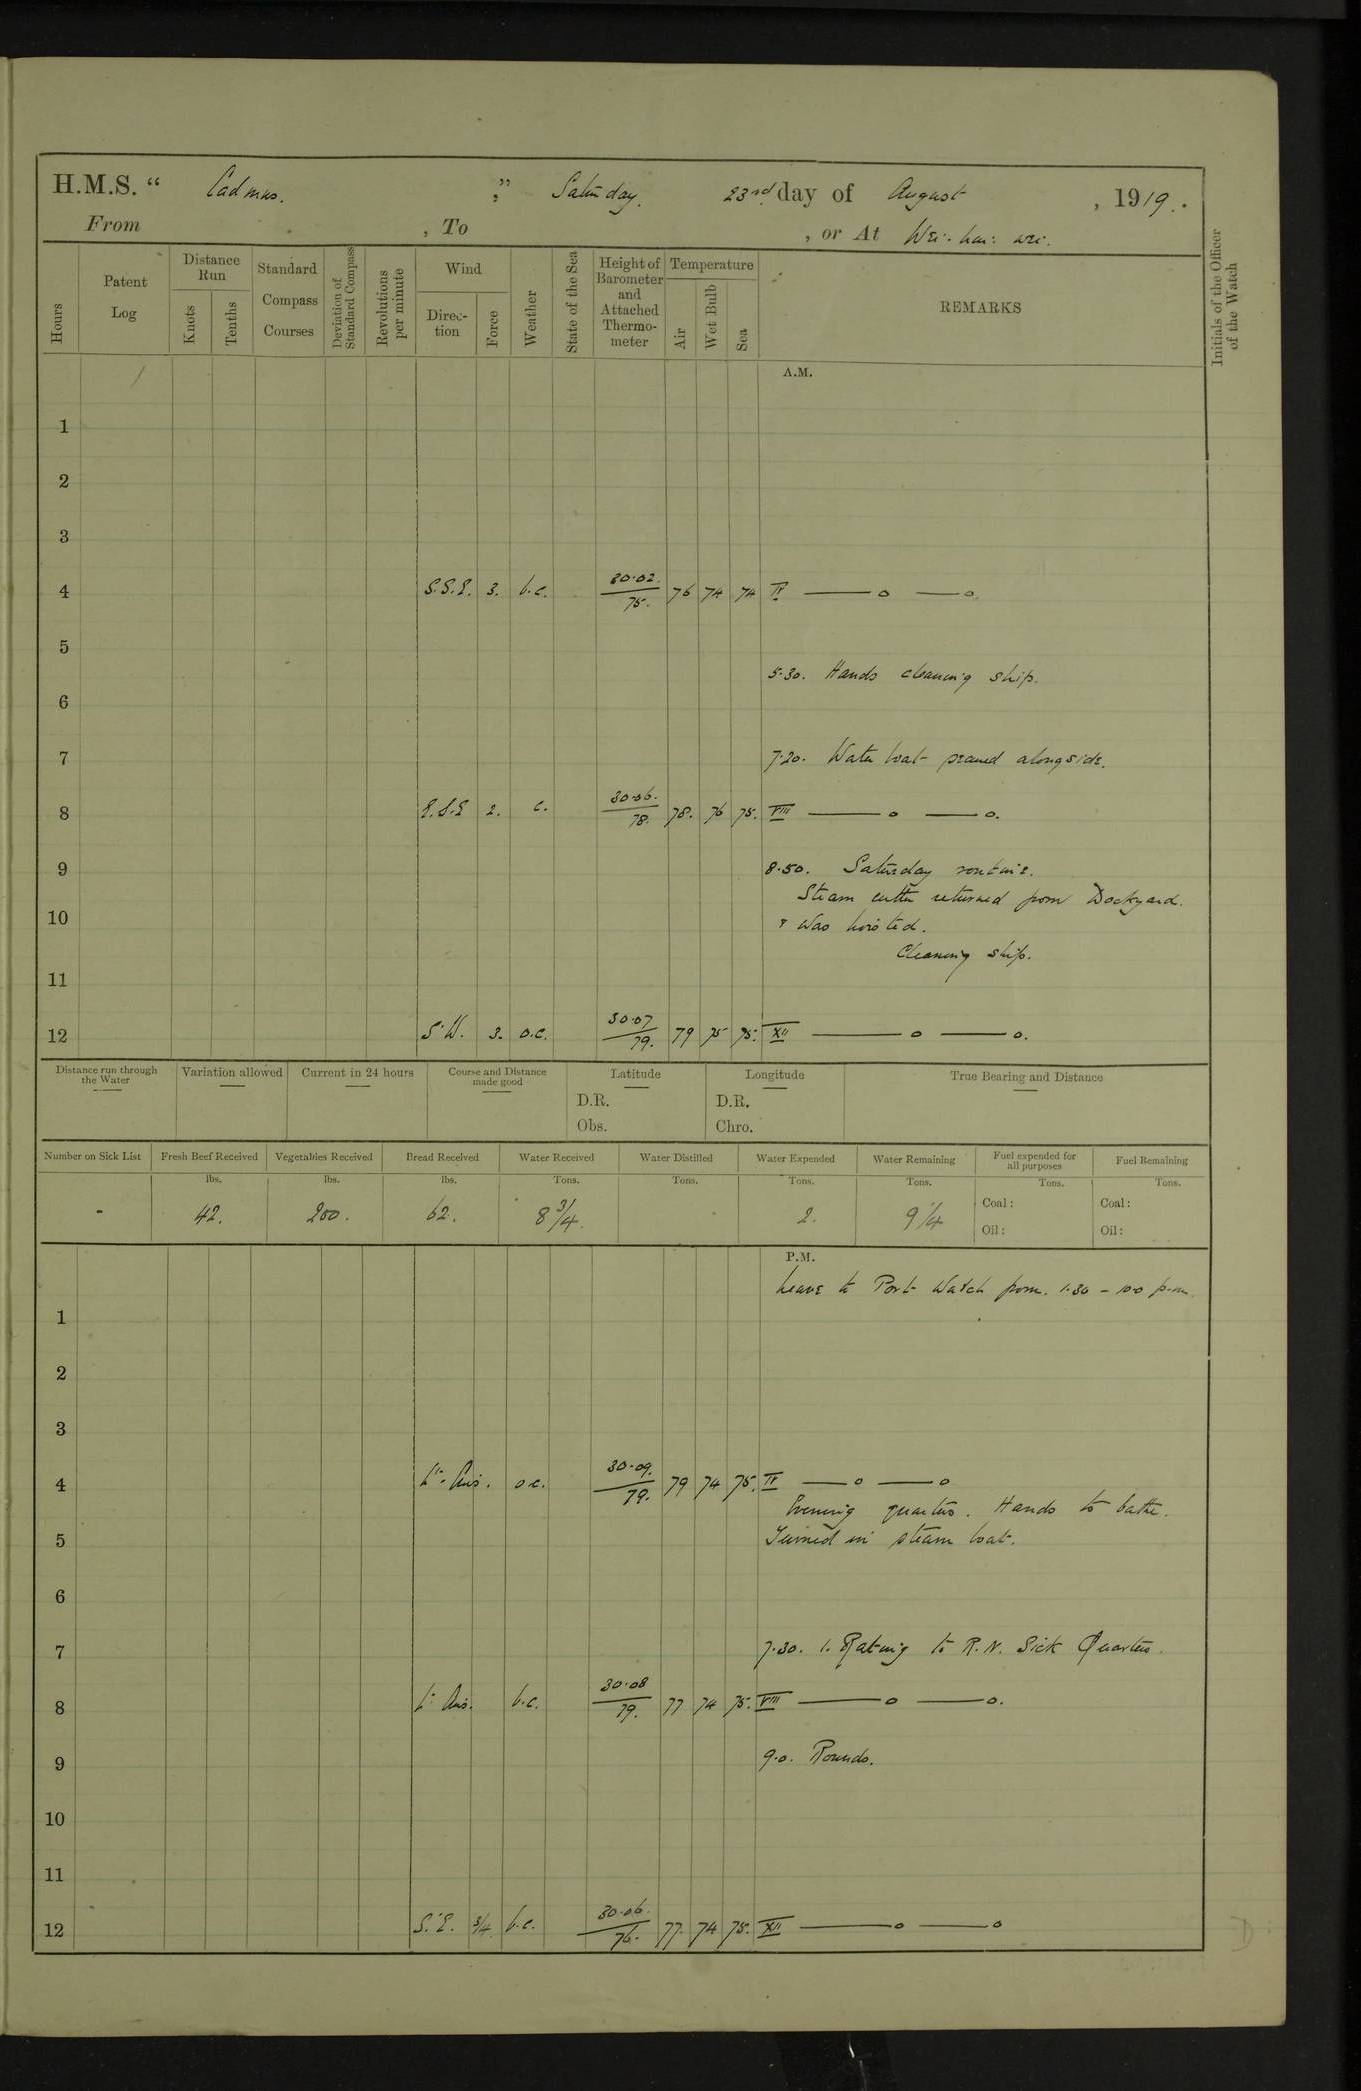 H.M.S. “ Cadmus. ,” Saturday. 23rd. day of August , 1919.
From , To , or At Wei-hai-wei.
Hours
Patent Log
Distance Run
Knots
Tenths
Standard Compass Courses
Deviation of Standard Compass
Revolutions per minute
Wind
Direction
Force
Weather
State of the Sea
Height of Barometer and Attached Thermometer
Temperature
Air
Wet Bulb
Sea
REMARKS
Initials of the Officer of the Watch
A.M.
1
2
3
4 S.S.E. 3. b.c. 30.02. 75. 76 74 74 IV ——o ——o.
5
5.30. Hands cleaning ship.
6
7 7.20. Water boat secured alongside.
8 E.S.E 2. c. 30.06. 78. 78. 76 75. VIII ——o ——o.
9 8.50. Saturday routine.
Steam cutter returned from Dockyard.
10 & was hoisted.
Cleaning ship.
11
12 S.W. 3. o.c. 30.07 79. 79 75 75. XII ——o ——o.
Distance run through the Water
Variation allowed
Current in 24 hours
Course and Distance made good
Latitude
D.R.
Obs.
Longitude
D.R.
Chro.
True Bearing and Distance
Number on Sick List Fresh Beef Received Vegetables Received Bread Received Water Received Water Distilled Water Expended Water Remaining Fuel expended for all purposes Fuel Remaining
lbs. lbs. lbs. Tons. Tons. Tons. Tons. Tons. Tons.
- 42. 200. 62. 8 3/4. 2. 9 1/4 Coal: Coal:
Oil: Oil:
P.M.
Leave to Port Watch from. 1.30 - 10.0 p.m.
1
2
3
4 Lt. Airs. o.c. 30.09. 79. 79 74 75. IV ——o ——o
Evening quarters. Hands to bathe.
5 Turned in steam boat.
6
7 7.30. 1. Rating to R.N. Sick Quarters.
8 Lt. Airs. b.c. 30.08 79. 77 74 75. VIII ——o ——o.
9 9.0. Rounds.
10
11
12 S.E. 3/4 b.c. 30.06. 76. 77. 74 75. XII ——o ——o